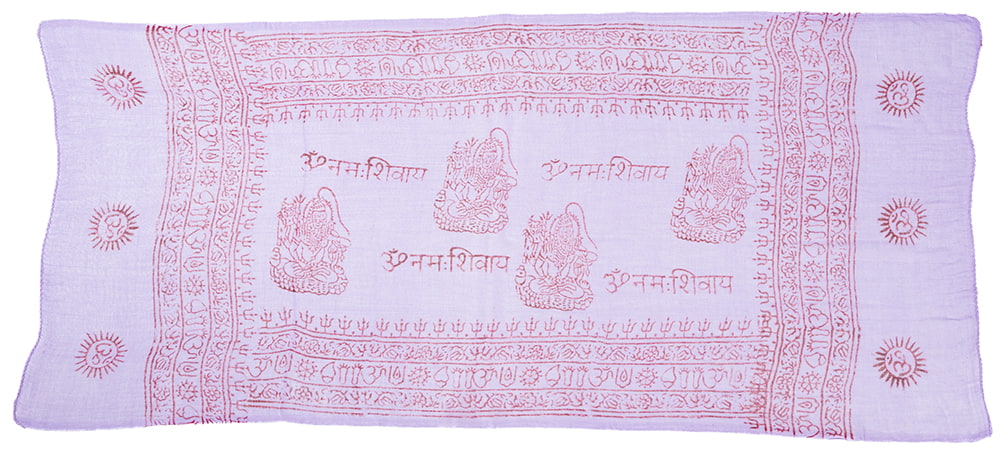 ॐ नमःशिवाय
ॐ नमःशिवाय
ॐ नमःशिवाय
ॐ नमःशिवाय
ॐ
ॐ
ॐ
ॐ
ॐ
ॐ